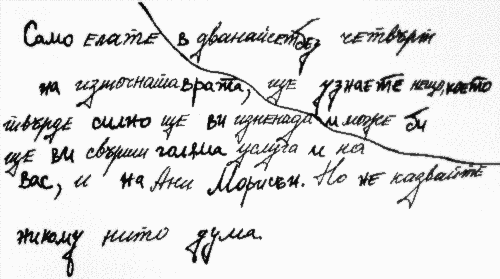 Само елате в дванайсет без четвърт
на източната врата, ще узнаете нещо, което
твърде силно ще ви изненада и може би
ще ви свърши голяма услуга и на
вас, и на Ани Морисън. Но не казвайте
никому нито дума.